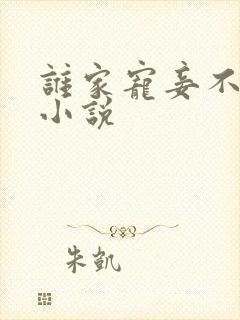 誰家寵妾不
小說
朱凱